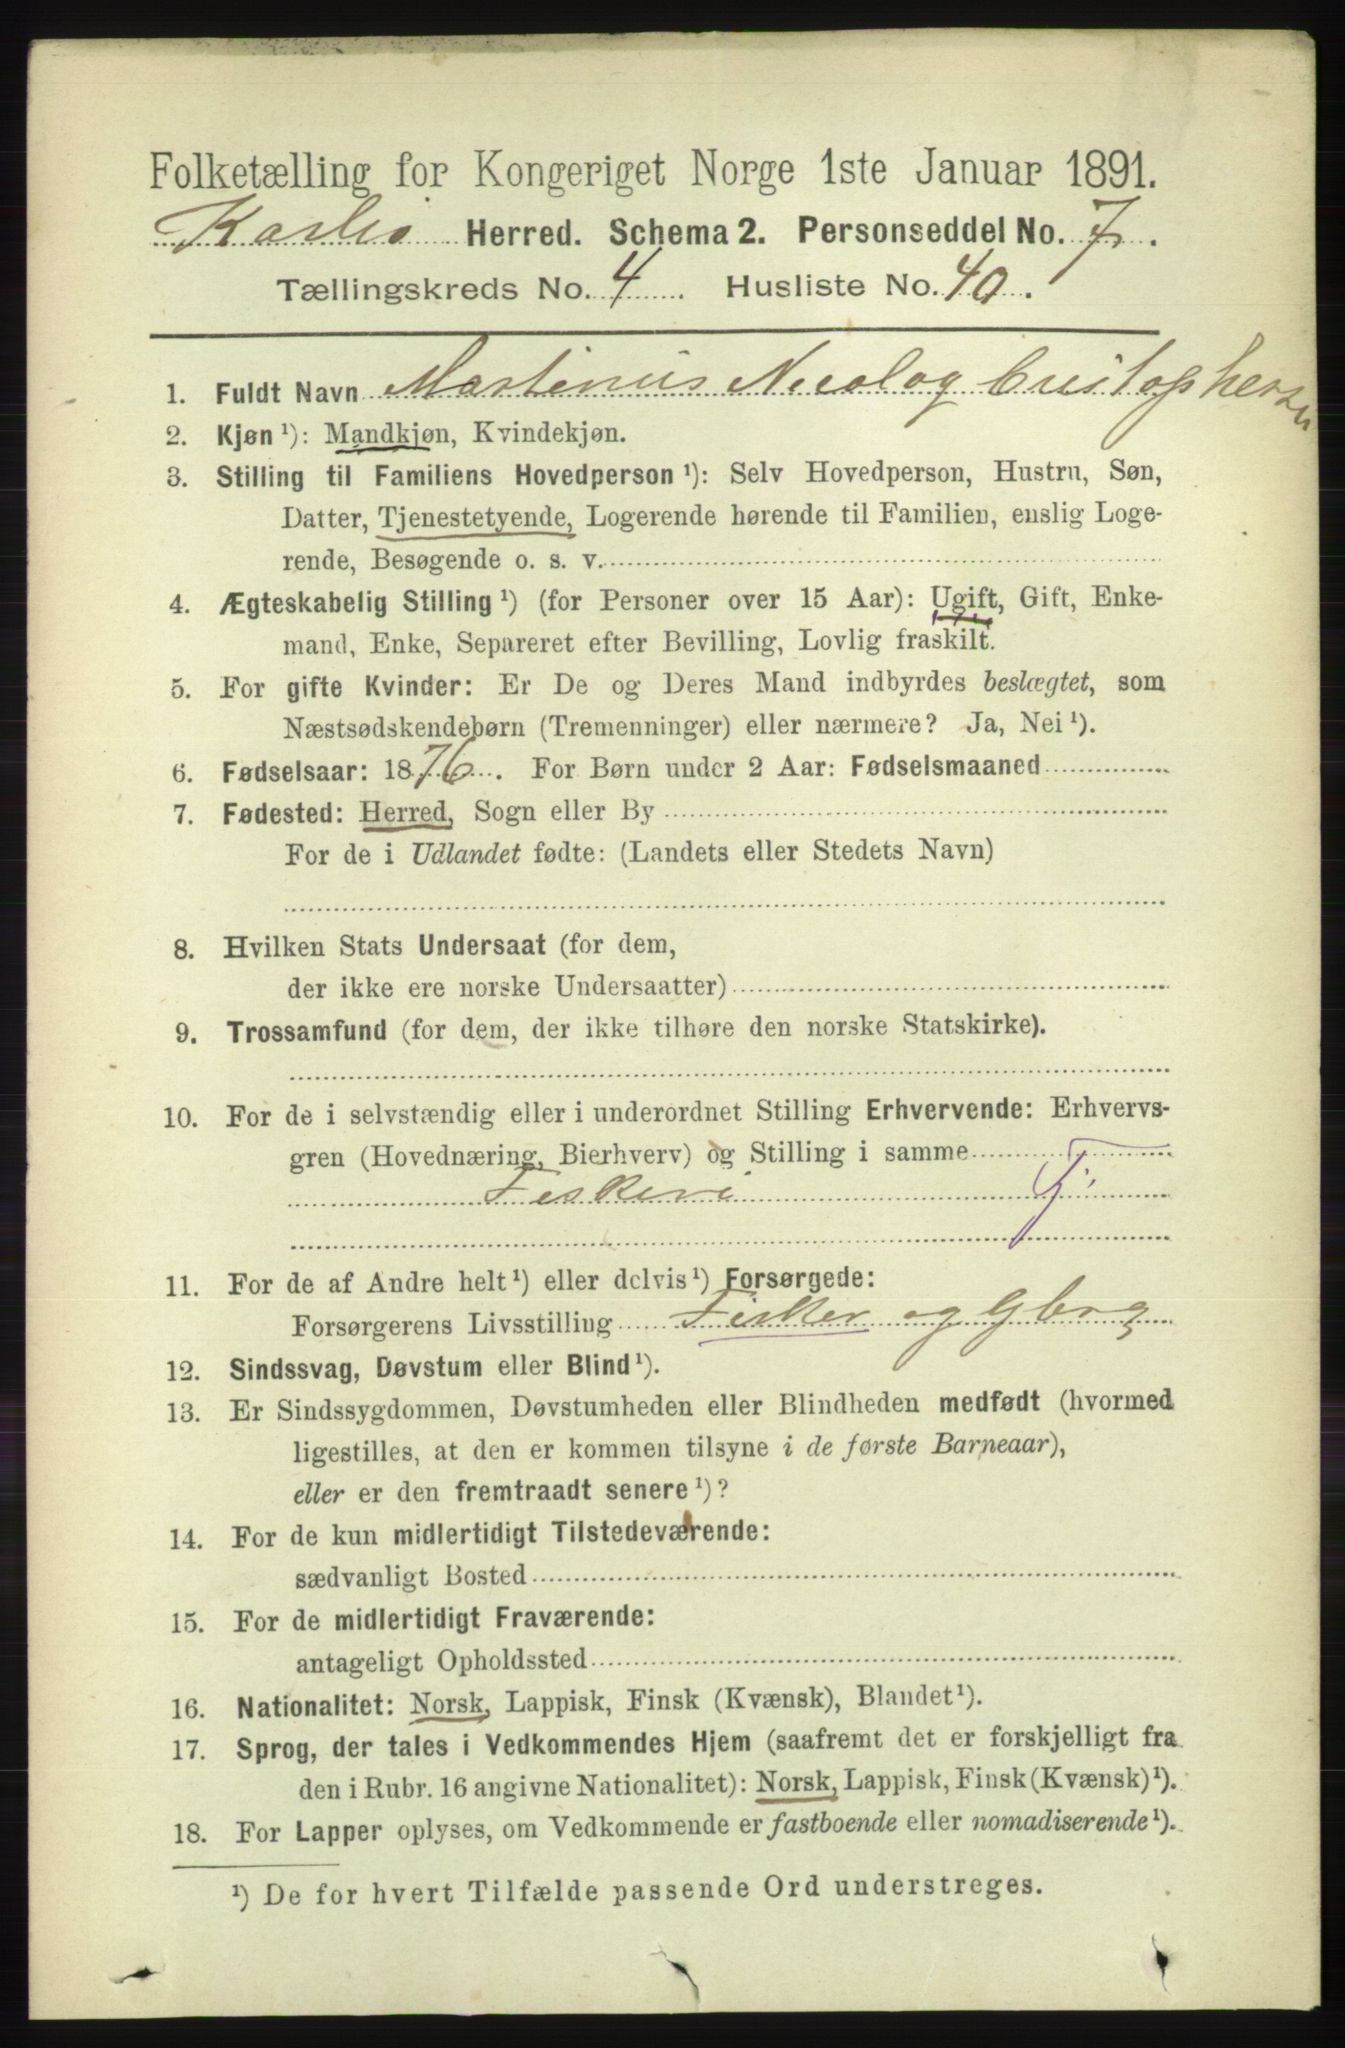 Folketælling for Kongeriget Norge 1ste Januar 1891.
Karlsø Herred. Schema 2. Personseddel No. 7.
Tællingskreds No. 4. Husliste No. 40.
1. Fuldt Navn Martinus Necolog Cristophersen
2. Kjøn ¹): Mandkjøn, Kvindekjøn.
3. Stilling til Familiens Hovedperson ¹): Selv Hovedperson, Hustru, Søn,
Datter, Tjenestetyende, Logerende hørende til Familien, enslig Loge-
rende, Besøgende o. s. v.
4. Ægteskabelig Stilling ¹) (for Personer over 15 Aar): Ugift, Gift, Enke-
mand, Enke, Separeret efter Bevilling, Lovlig fraskilt.
5. For gifte Kvinder: Er De og Deres Mand indbyrdes beslægtet, som
Næstsødskendebørn (Tremenninger) eller nærmere? Ja, Nei ¹).
6. Fødselsaar: 1876. For Børn under 2 Aar: Fødselsmaaned
7. Fødested: Herred, Sogn eller By
For de i Udlandet fødte: (Landets eller Stedets Navn)
8. Hvilken Stats Undersaat (for dem,
der ikke ere norske Undersaatter)
9. Trossamfund (for dem, der ikke tilhøre den norske Statskirke).
10. For de i selvstændig eller i underordnet Stilling Erhvervende: Erhvervs-
gren (Hovednæring, Bierhverv) og Stilling i samme
Fiskeri
11. For de af Andre helt ¹) eller delvis ¹) Forsørgede:
Forsørgerens Livsstilling Fisker og Gbrg
12. Sindssvag, Døvstum eller Blind ¹).
13. Er Sindssygdommen, Døvstumheden eller Blindheden medfødt (hvormed
ligestilles, at den er kommen tilsyne i de første Barneaar),
eller er den fremtraadt senere ¹)?
14. For de kun midlertidigt Tilstedeværende:
sædvanligt Bosted
15. For de midlertidigt Fraværende:
antageligt Opholdssted
16. Nationalitet: Norsk, Lappisk, Finsk (Kvænsk), Blandet ¹).
17. Sprog, der tales i Vedkommendes Hjem (saafremt det er forskjelligt fra
den i Rubr. 16 angivne Nationalitet): Norsk, Lappisk, Finsk (Kvænsk) ¹).
18. For Lapper oplyses, om Vedkommende er fastboende eller nomadiserende ¹).
¹) De for hvert Tilfælde passende Ord understreges.